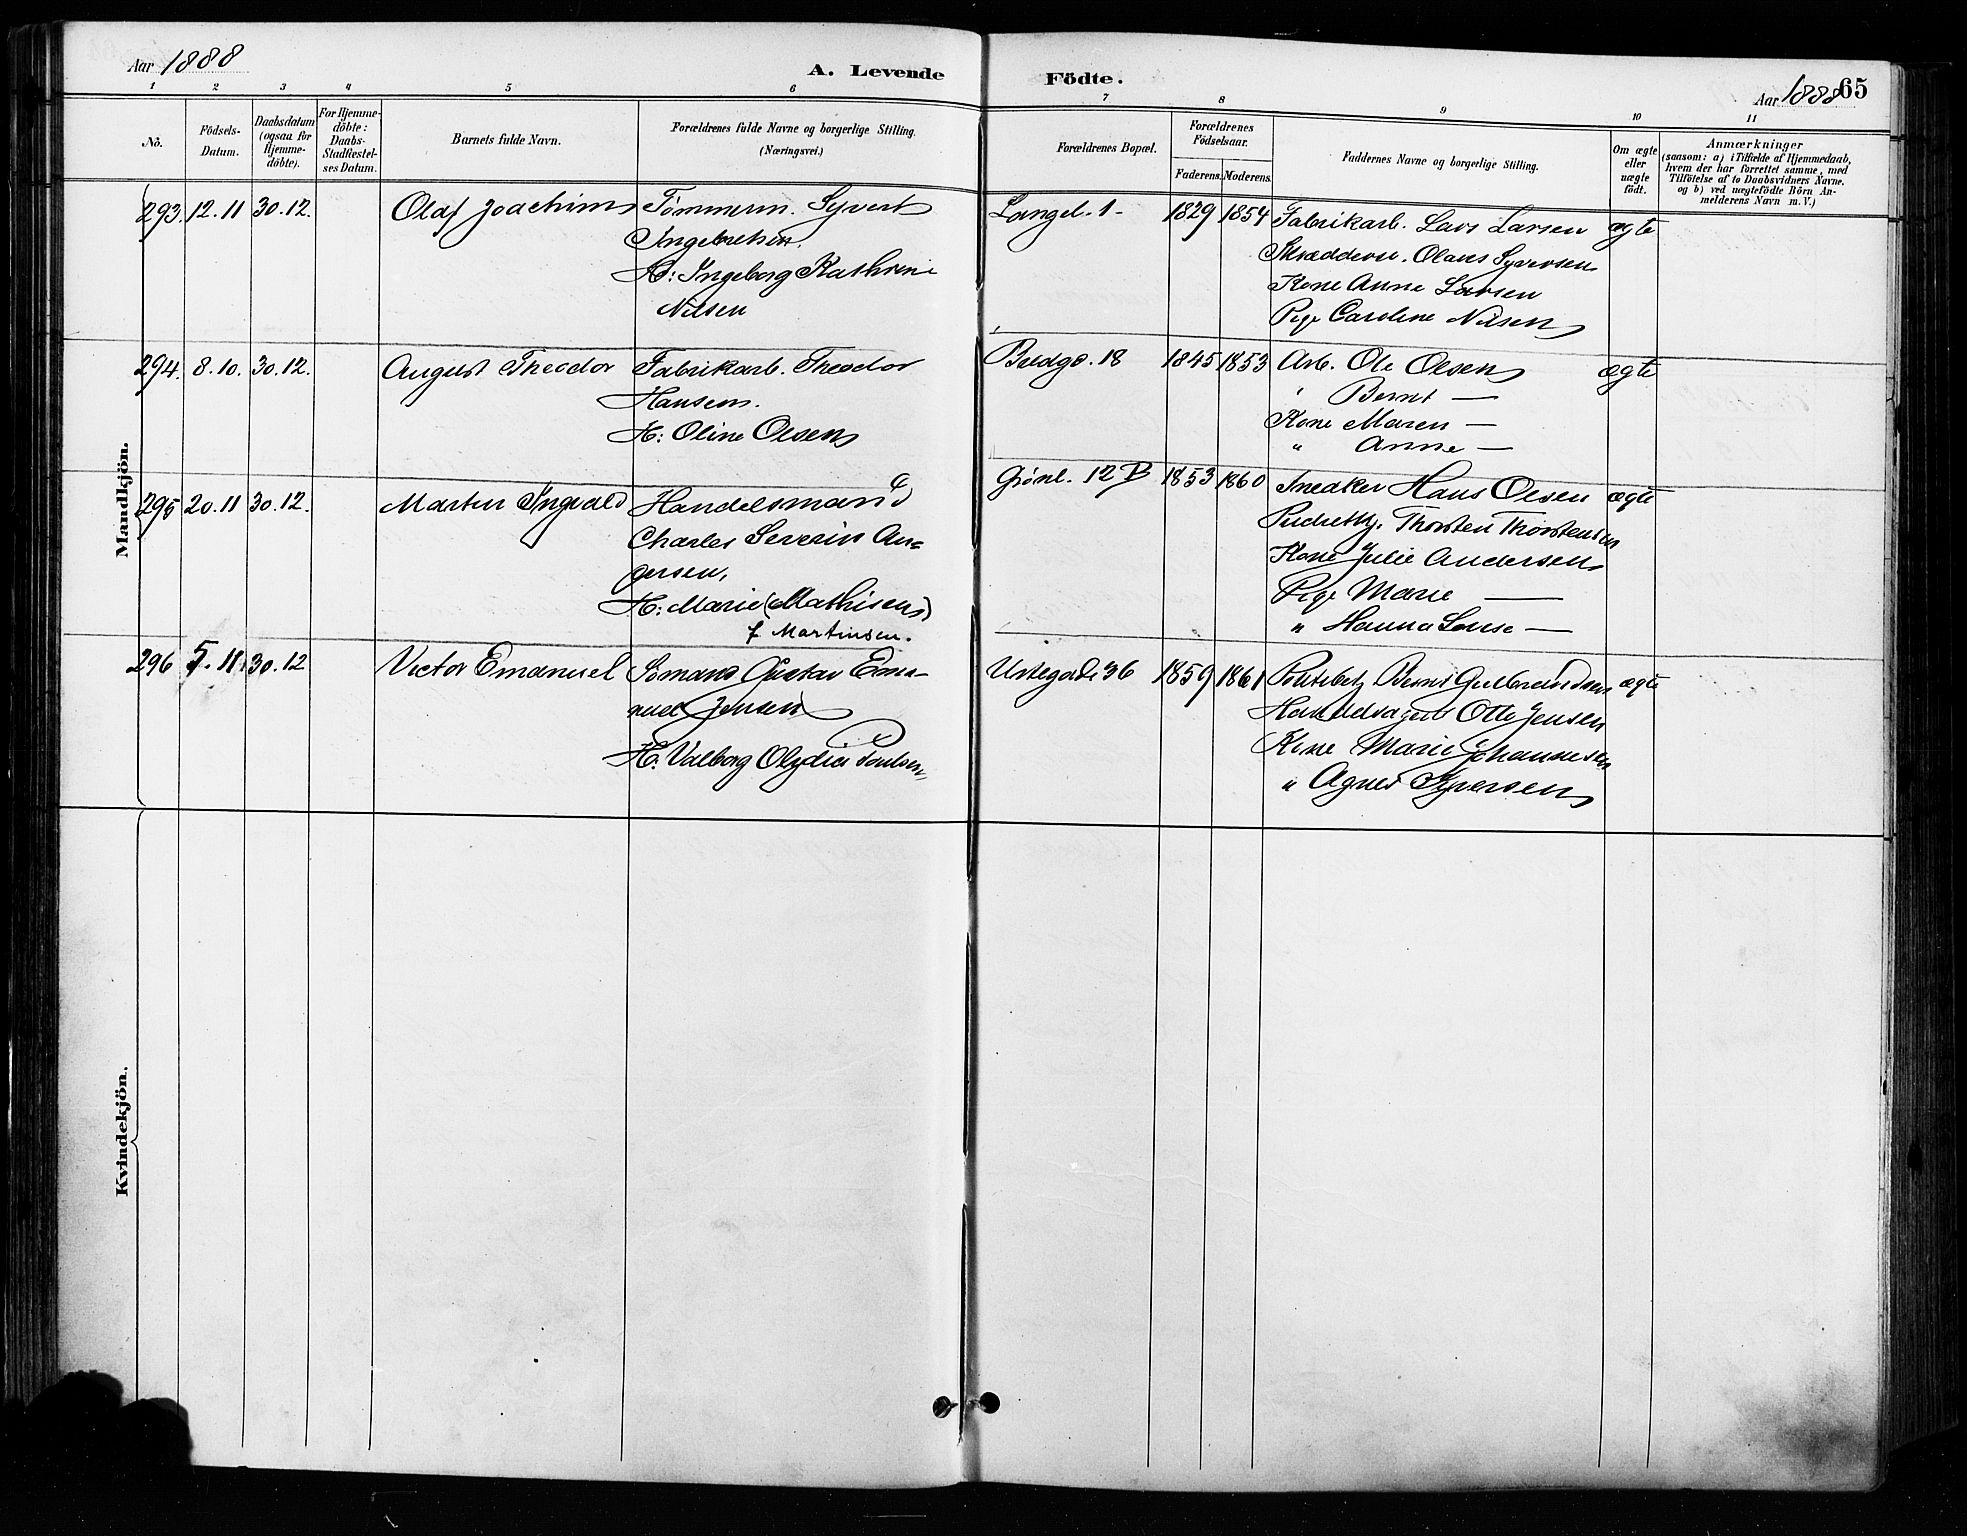 Aar 1888
A. Levende Födte.
Aar 1888
65
1 2 3 4 5 6 7 8 9 10 11
No.
Födsels-Datum.
Daabsdatum (ogsaa for Hjemme-döbte).
For Hjemme-döbte: Daabs-Stadfæstel-ses Datum.
Barnets fulde Navn.
Forældrenes fulde Navne og borgerlige Stilling. (Næringsvei.)
Forældrenes Bopæl.
Forældrenes Födselsaar.
Faderens. Moderens.
Faddernes Navne og borgerlige Stilling.
Om ægte eller uægte født.
Anmærkninger
(saasom: a) i Tilfælde af Hjemmedaab,
hvem der har forrettet samme, med
Tilföielse af to Daabsvidners Navne,
og b) ved uægtefödte Börn An-
melderens Navn m. V.)
Mandkjön.
293. 12.11 30.12. Olaf Joachim Tömmerm. Syvert Langel. 1 1829 1854 Fabrikarb. Lars Larsen ægte
Ingebretsen. Skrædders. Olaus Syversen
H: Ingeborg Kathrine Kone Anne Larsen
Nilsen Pige Caroline Nilsen
294. 8.10. 30.12. August Theodor Fabrikarb. Theodor Bredgd. 18 1845 1853 Arb. Ole Olsen ægte
Hansen. " Bernt —
H: Oline Olsen Kone Maren —
" Anne —
295 20.11 30.12. Martin Ingvald Handelsmand Grönl. 12 B 1853 1860 Snedker Hans Olsen ægte
Charles Severin An- Thorsten Thorstensen
dersen, Kone Julie Andersen
H: Marie (Mathisen) Pige Marie —
f Martinsen. " Hanna —
296 5.11. 30.12 Victor Emanuel Sömand Gustav Ema- 36 1859 1861 Politibetj Bernt Gulbrandsen ægte
nuel Jensen Handelsagent Otto Jensen
H: Valborg Olydia Poulsen Kone Marie Johannesen
" Agnes Syversen
Kvindekjön.